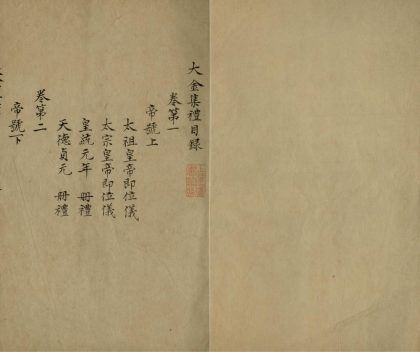 大金集禮目録
卷第一
帝號上
太祖皇帝即位儀
太宗皇帝即位儀
皇統元年 冊禮
天德貞元 冊禮
卷第二
帝號下